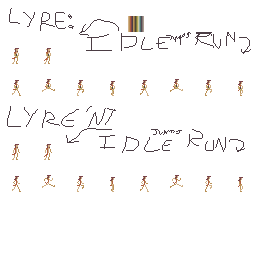 LYRE:
IDLE JUMPS RUN
LYRE 'NT
IDLE JUMPS RUN